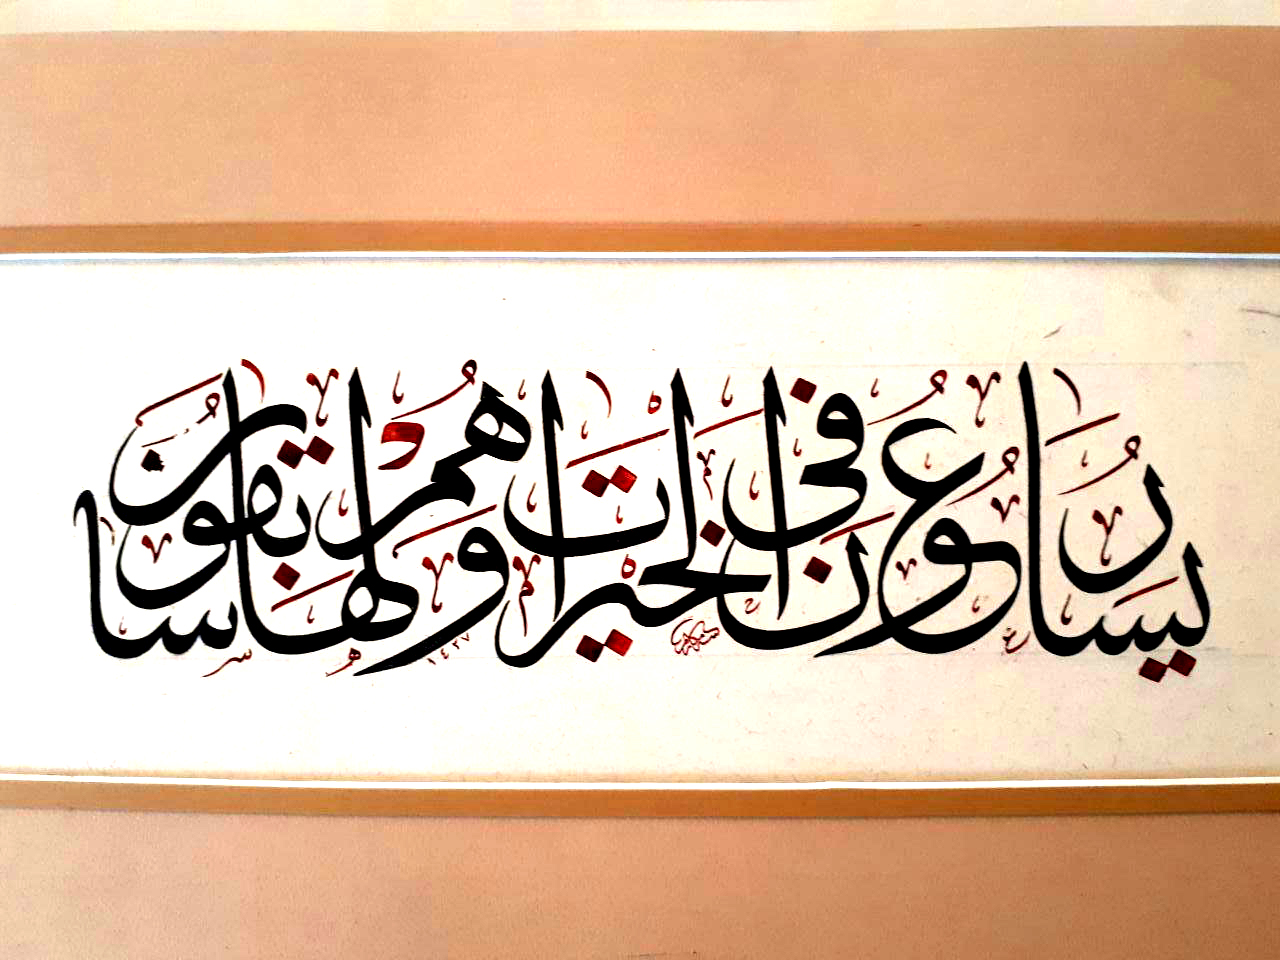 يُسَارِعُونَ فِي الْخَيْرَاتِ وَهُمْ لَهَا سَابِقُونَ
١٤٣٧